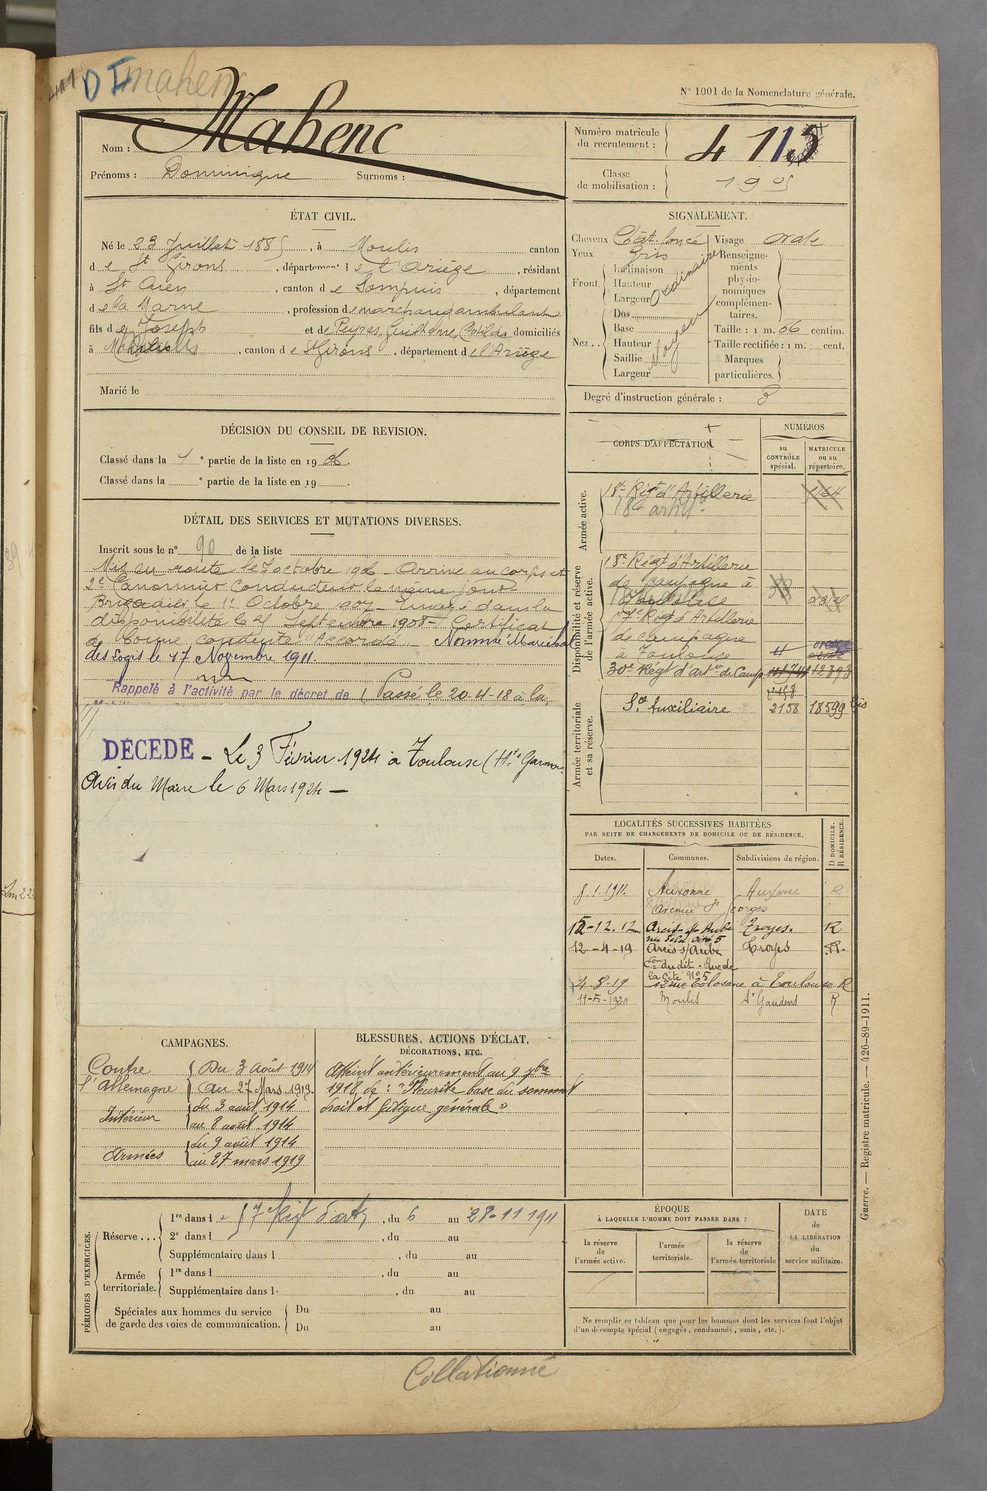 DI Mahenc
N° 1001 de la Nomenclature générale.
Nom : Mahenc
Prénoms : Dominique Surnoms :
Numéro matricule du recrutement : 4113
Classe de mobilisation : 1905
ÉTAT CIVIL.
Né le 23 Juillet 1885, à Moulis canton
d e St Girons, département d e l'Ariège, résidant
à St Ouen, canton d e Sompuis, département
d e la Marne, profession de marchand ambulant
fils de Joseph et de Peyras, domiciliés
à Moulis, canton d e St Girons, département d e l'Ariège
Marié le
SIGNALEMENT.
Cheveux Chât foncé Visage ovale
Yeux Gris
Front. Inclinaison Hauteur Largeur Ordinaire
Nez.. Dos Base Hauteur Saillie Largeur Moyen
Renseignements physionomiques complémentaires.
Taille : 1 m. 66 centim.
Taille rectifiée : 1 m. cent.
Marques particulières.
Degré d'instruction générale : 3
DÉCISION DU CONSEIL DE REVISION.
Classé dans la 1e partie de la liste en 1906.
Classé dans la e partie de la liste en 19 .
DÉTAIL DES SERVICES ET MUTATIONS DIVERSES.
Inscrit sous le n° 90 de la liste
Mis en route le 7 octobre 1906 - Arrivé au corps et
2e Canonnier Conducteur le même jour
Brigadier le 1er Octobre 1907 - Envoyé dans la
disponibilité le Septembre 1908 - Certificat
de bonne conduite "Accordé" - Nommé Maréchal
des Logis le 17 Novembre 1911.
Rappelé à l'activité par le décret de Passé le 20-4-18 à la
DÉCÉDÉ - Le 3 Février 1924 à Toulouse (Hte Garonne
Avis du Maire le 6 Mars 1924 -
CORPS D'AFFECTATION.
NUMÉROS
au CONTRÔLE spécial.
MATRICULE ou au répertoire.
Armée active.
18e Régt d'Artillerie
18e artie
Disponibilité et réserve de l'armée active.
18e Régt d'Artillerie
de campagne à
Régt d'Artillerie
de campagne
à Toulouse
30e Régt d'arte de Camp
Armée territoriale et sa réserve.
Sce Auxiliaire 2158 18599 bis
LOCALITÉS SUCCESSIVES HABITÉES
PAR SUITE DE CHANGEMENTS DE DOMICILE OU DE RÉSIDENCE.
Dates. Communes. Subdivisions de région. D DOMICILE. R RÉSIDENCE.
8.1.1911. Auxonne Auxonne R
15-12.12 Arcis-s-Aube Troyes. R
12-4-19 Arcis s/Aube Troyes R.
Rue de la Cité N°5
4-8-19 à Toulouse R
11-5-1920 Moulis St Gaudens R
CAMPAGNES.
Contre l'Allemagne Du 3 août 1914 au 27 Mars 1919
Intérieur du 3 août 1914 au 8 août 1914
Armées du 9 août 1914 au 27 mars 1919
BLESSURES, ACTIONS D'ÉCLAT,
DÉCORATIONS, ETC.
Atteint antérieurement au 9 9bre
1918 de : "Pleurite base du sommet
droit et fatigue générale"
PÉRIODES D'EXERCICES.
Réserve... 1re dans l e 57e Regt d'art, du 6 au 28-11 1911
2e dans l , du au
Supplémentaire dans l , du au
Armée territoriale. 1re dans l , du au
Supplémentaire dans l , du au
Spéciales aux hommes du service de garde des voies de communication. Du au
Du au
ÉPOQUE
À LAQUELLE L'HOMME DOIT PASSER DANS :
la réserve de l'armée active.
l'armée territoriale.
la réserve de l'armée territoriale
DATE de LA LIBÉRATION du service militaire.
Ne remplir ce tableau que pour les hommes dont les services font l'objet
d'un décompte spécial (engagés, condamnés, omis, etc.).
Guerre. — Registre matricule. — 426-89-1911.
Collationné